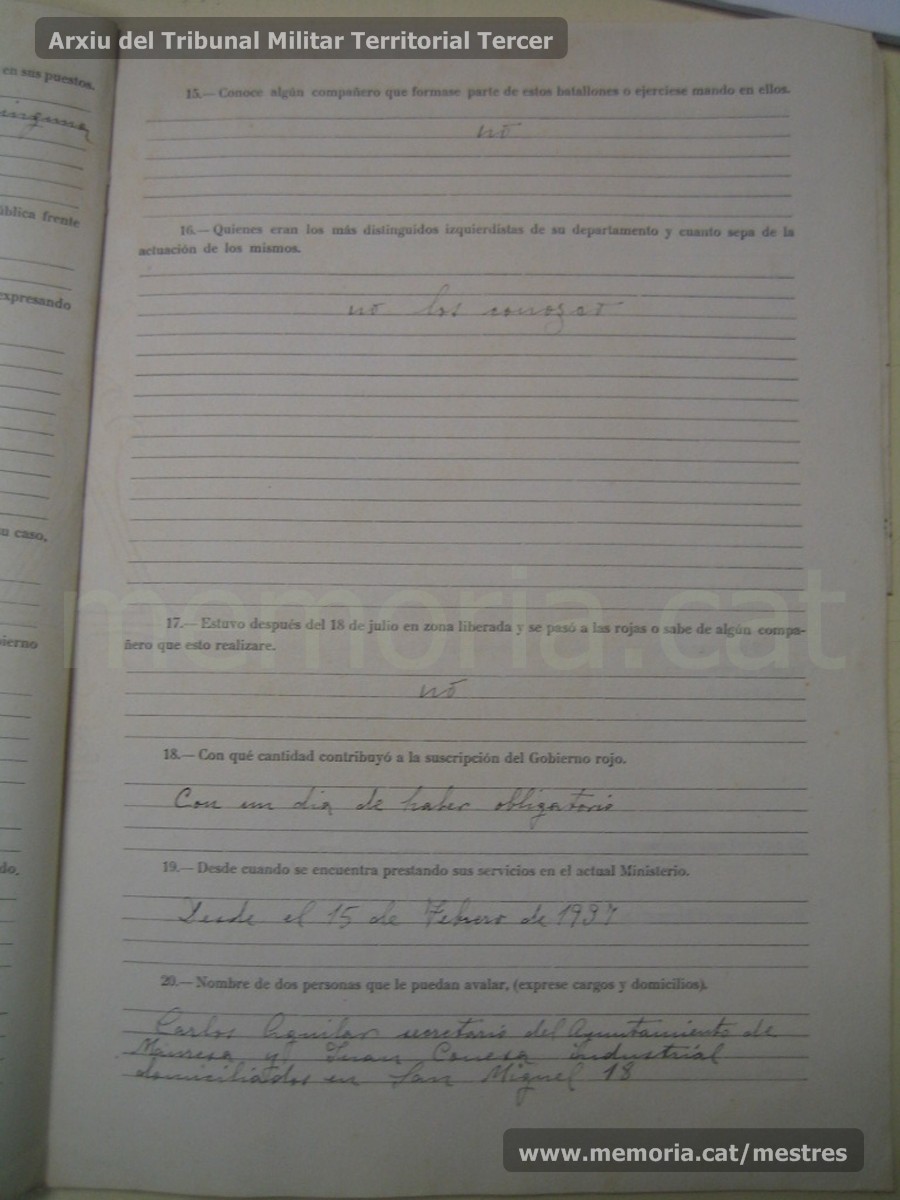 Arxiu del Tribunal Militar Territorial Tercer
en sus puestos.
ública frente
expresando
u caso,
ierno
do.
15.— Conoce algún compañero que formase parte de estos batallones o ejerciese mando en ellos.
no
16.— Quienes eran los más distinguidos izquierdistas de su departamento y cuanto sepa de la
actuación de los mismos.
no los conozco
memoria.cat
17.— Estuvo después del 18 de julio en zona liberada y se pasó a las rojas o sabe de algún compa-
ñero que esto realizare.
no
18.— Con qué cantidad contribuyó a la suscripción del Gobierno rojo.
Con un dia de haber obligatorio
19.— Desde cuando se encuentra prestando sus servicios en el actual Ministerio.
Desde el 15 de Febrero de 1937
20.— Nombre de dos personas que le puedan avalar, (exprese cargos y domicilios).
Carlos Aguilar secretario del Ayuntamiento de
Manresa y Juan Conesa industrial
domiciliados en San Miguel 18
www.memoria.cat/mestres